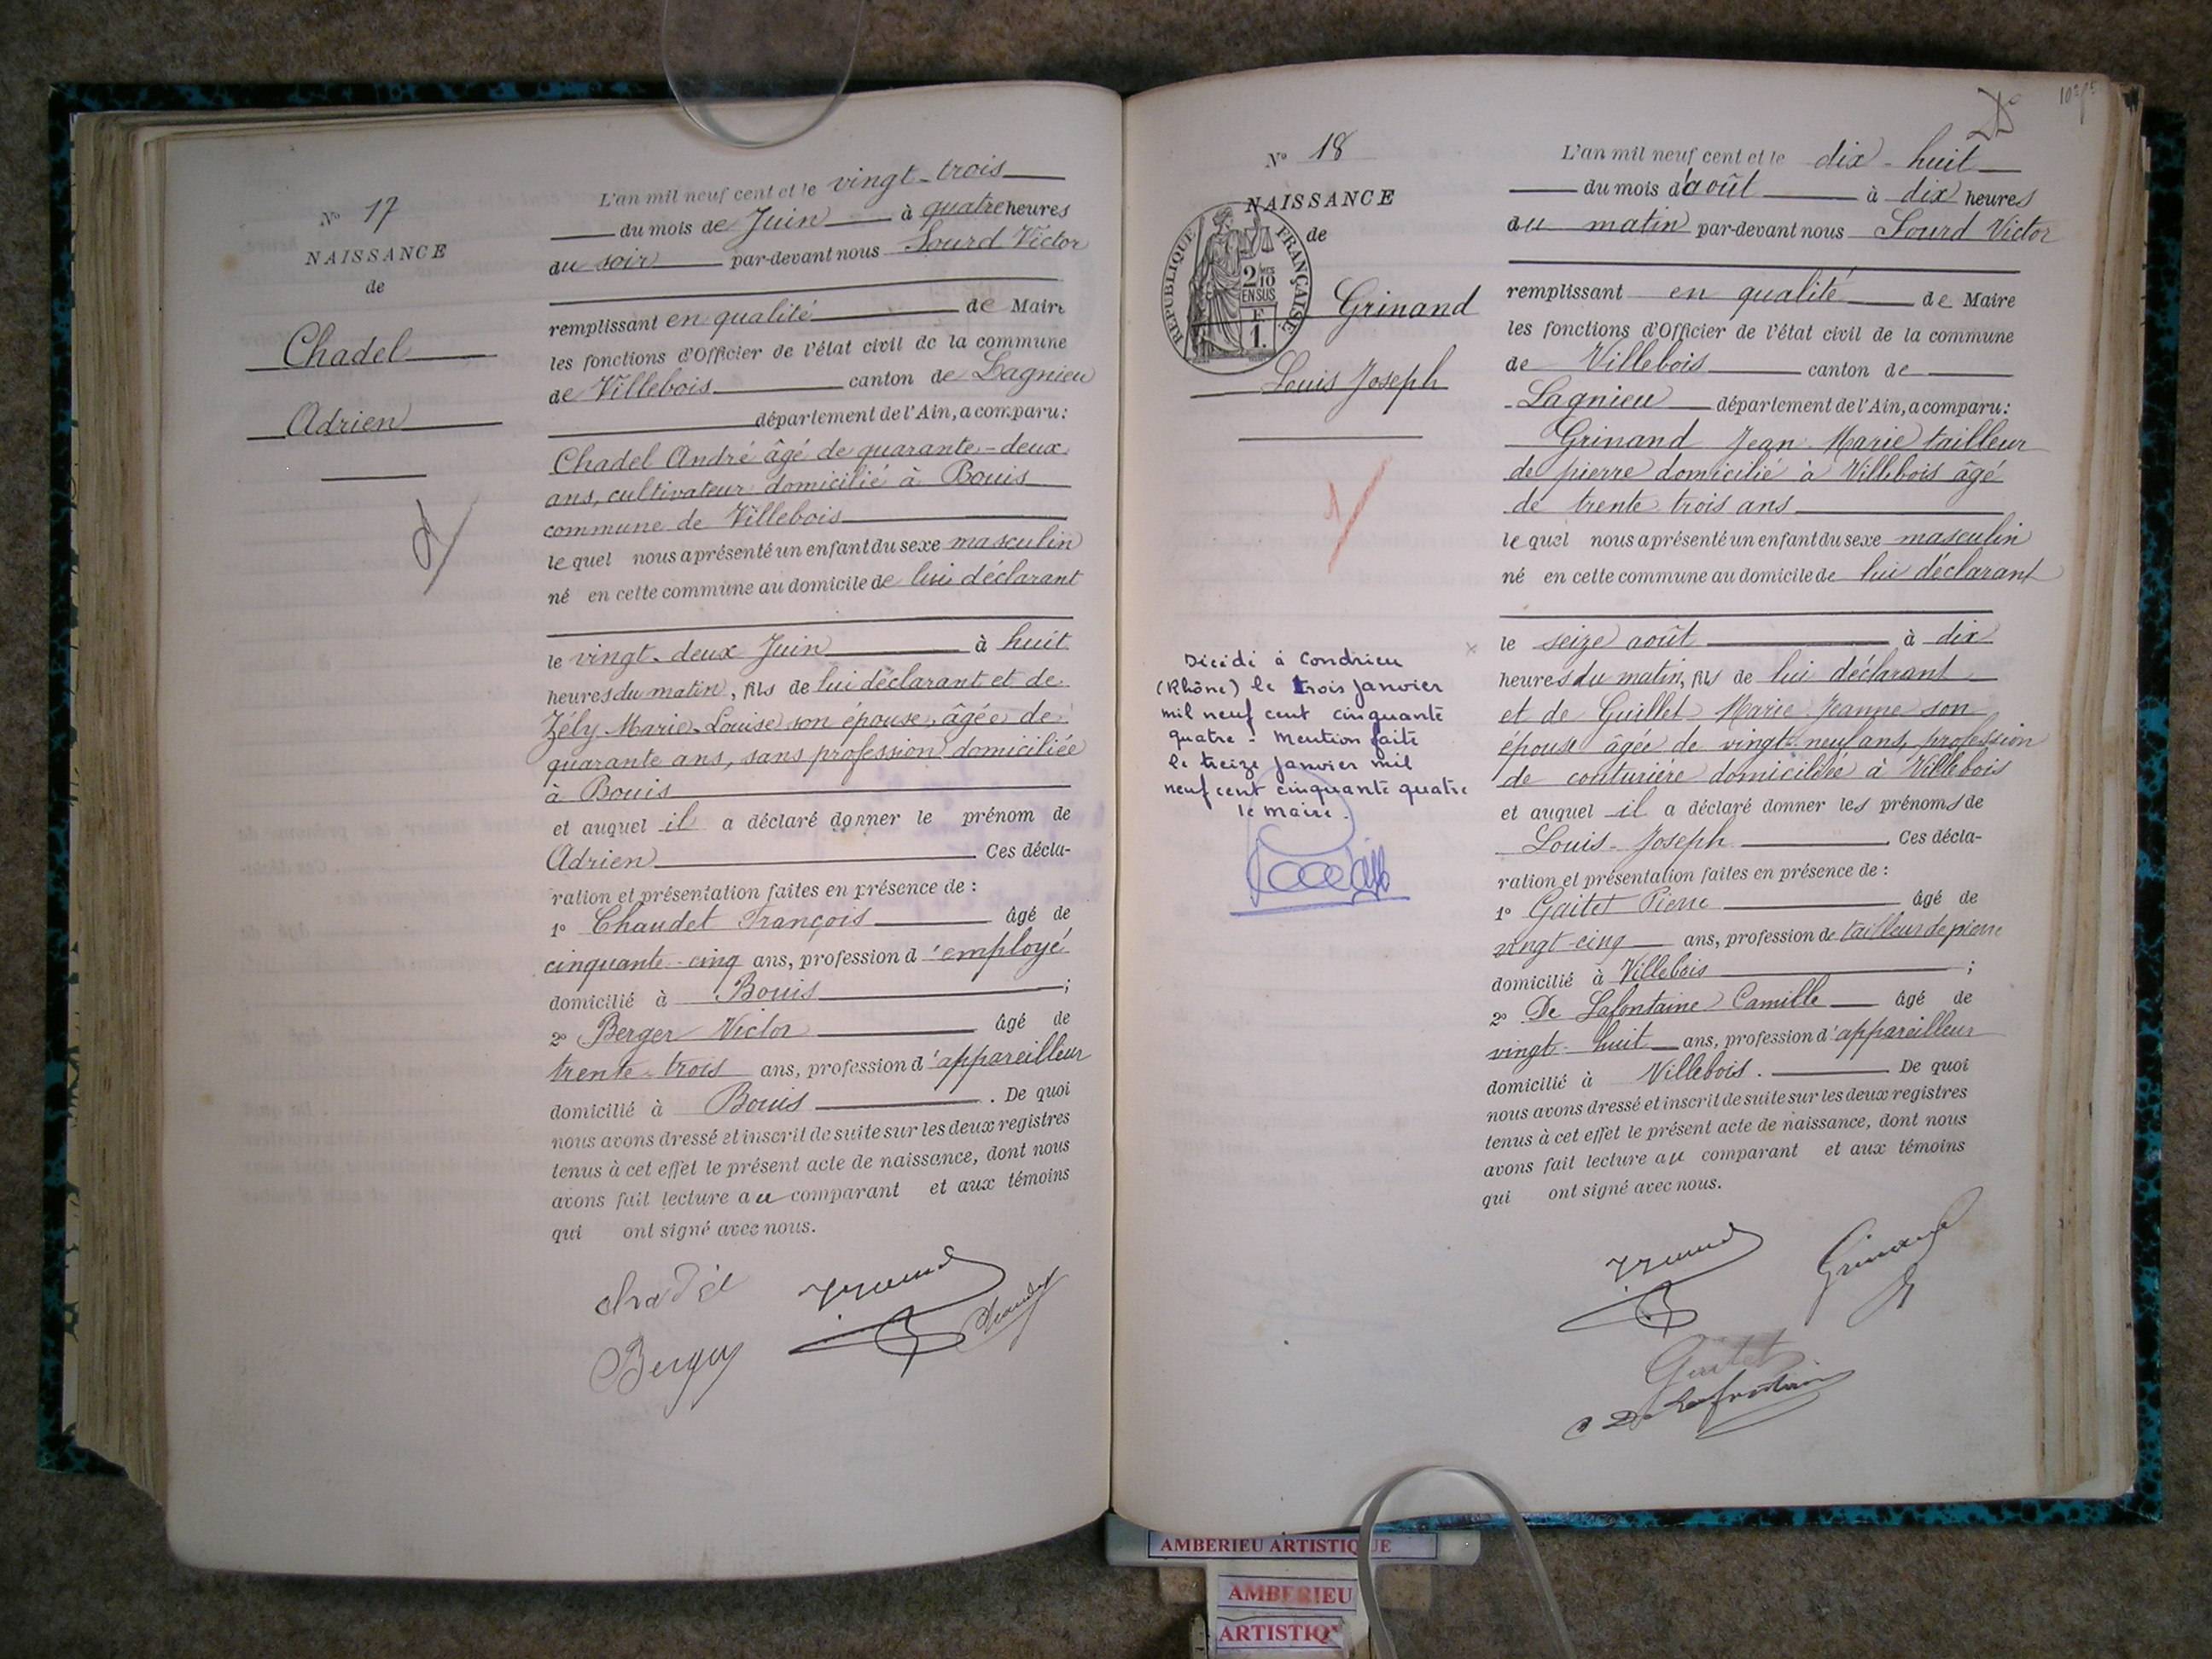 N° 17
NAISSANCE
de
Chadel
Adrien
L'an mil neuf cent et le vingt-trois
du mois de Juin à quatre heures
du soir par-devant nous Lourd Victor
remplissant en qualité de Maire
les fonctions d'Officier de l'état civil de la commune
de Villebois canton de Lagnieu
département de l'Ain, a comparu:
Chadel André âgé de quarante-deux
ans, cultivateur domicilié à Bouis
commune de Villebois
le quel nous a présenté un enfant du sexe masculin
né en cette commune au domicile de lui déclarant
le vingt-deux Juin à huit
heures du matin, fils de lui déclarant et de
Zély Marie-Louise son épouse, âgée de
quarante ans, sans profession domiciliée
à Bouis
et auquel il a déclaré donner le prénom de
Adrien Ces décla-
ration et présentation faites en présence de :
1° Chaudet François âgé de
cinquante-cinq ans, profession d'employé
domicilié à Bouis ;
2° Berger Victor âgé de
trente-trois ans, profession d'appareilleur
domicilié à Bouis . De quoi
nous avons dressé et inscrit de suite sur les deux registres
tenus à cet effet le présent acte de naissance, dont nous
avons fait lecture au comparant et aux témoins
qui ont signé avec nous.
Chadel
Berger
Chaudet
N° 18
NAISSANCE
de
RÉPUBLIQUE FRANÇAISE
2 MES
10
EN SUS
F.
1.
Grinand
Louis Joseph
Décédé à Condrieu
(Rhône) le trois Janvier
mil neuf cent cinquante
quatre - Mention faite
le treize Janvier mil
neuf cent cinquante quatre
le Maire.
L'an mil neuf cent et le dix-huit
du mois d'août à dix heures
du matin par-devant nous Lourd Victor
remplissant en qualité de Maire
les fonctions d'Officier de l'état civil de la commune
de Villebois canton de
Lagnieu département de l'Ain, a comparu:
Grinand Jean Marie tailleur
de pierre domicilié à Villebois âgé
de trente trois ans
le quel nous a présenté un enfant du sexe masculin
né en cette commune au domicile de lui déclarant
le seize août à dix
heures du matin, fils de lui déclarant
et de Guillet Marie Jeanne son
épouse âgée de vingt-neuf ans, profession
de couturière domiciliée à Villebois
et auquel il a déclaré donner les prénoms de
Louis-Joseph Ces décla-
ration et présentation faites en présence de :
1° Gaitet Pierre âgé de
vingt-cinq ans, profession de tailleur de pierre
domicilié à Villebois ;
2° De Lafontaine Camille âgé de
vingt-huit ans, profession d'appareilleur
domicilié à Villebois. De quoi
nous avons dressé et inscrit de suite sur les deux registres
tenus à cet effet le présent acte de naissance, dont nous
avons fait lecture au comparant et aux témoins
qui ont signé avec nous.
Grinand
Gaitet
C De Lafontaine
AMBERIEU ARTISTIQUE
AMBERIEU
ARTISTIQ